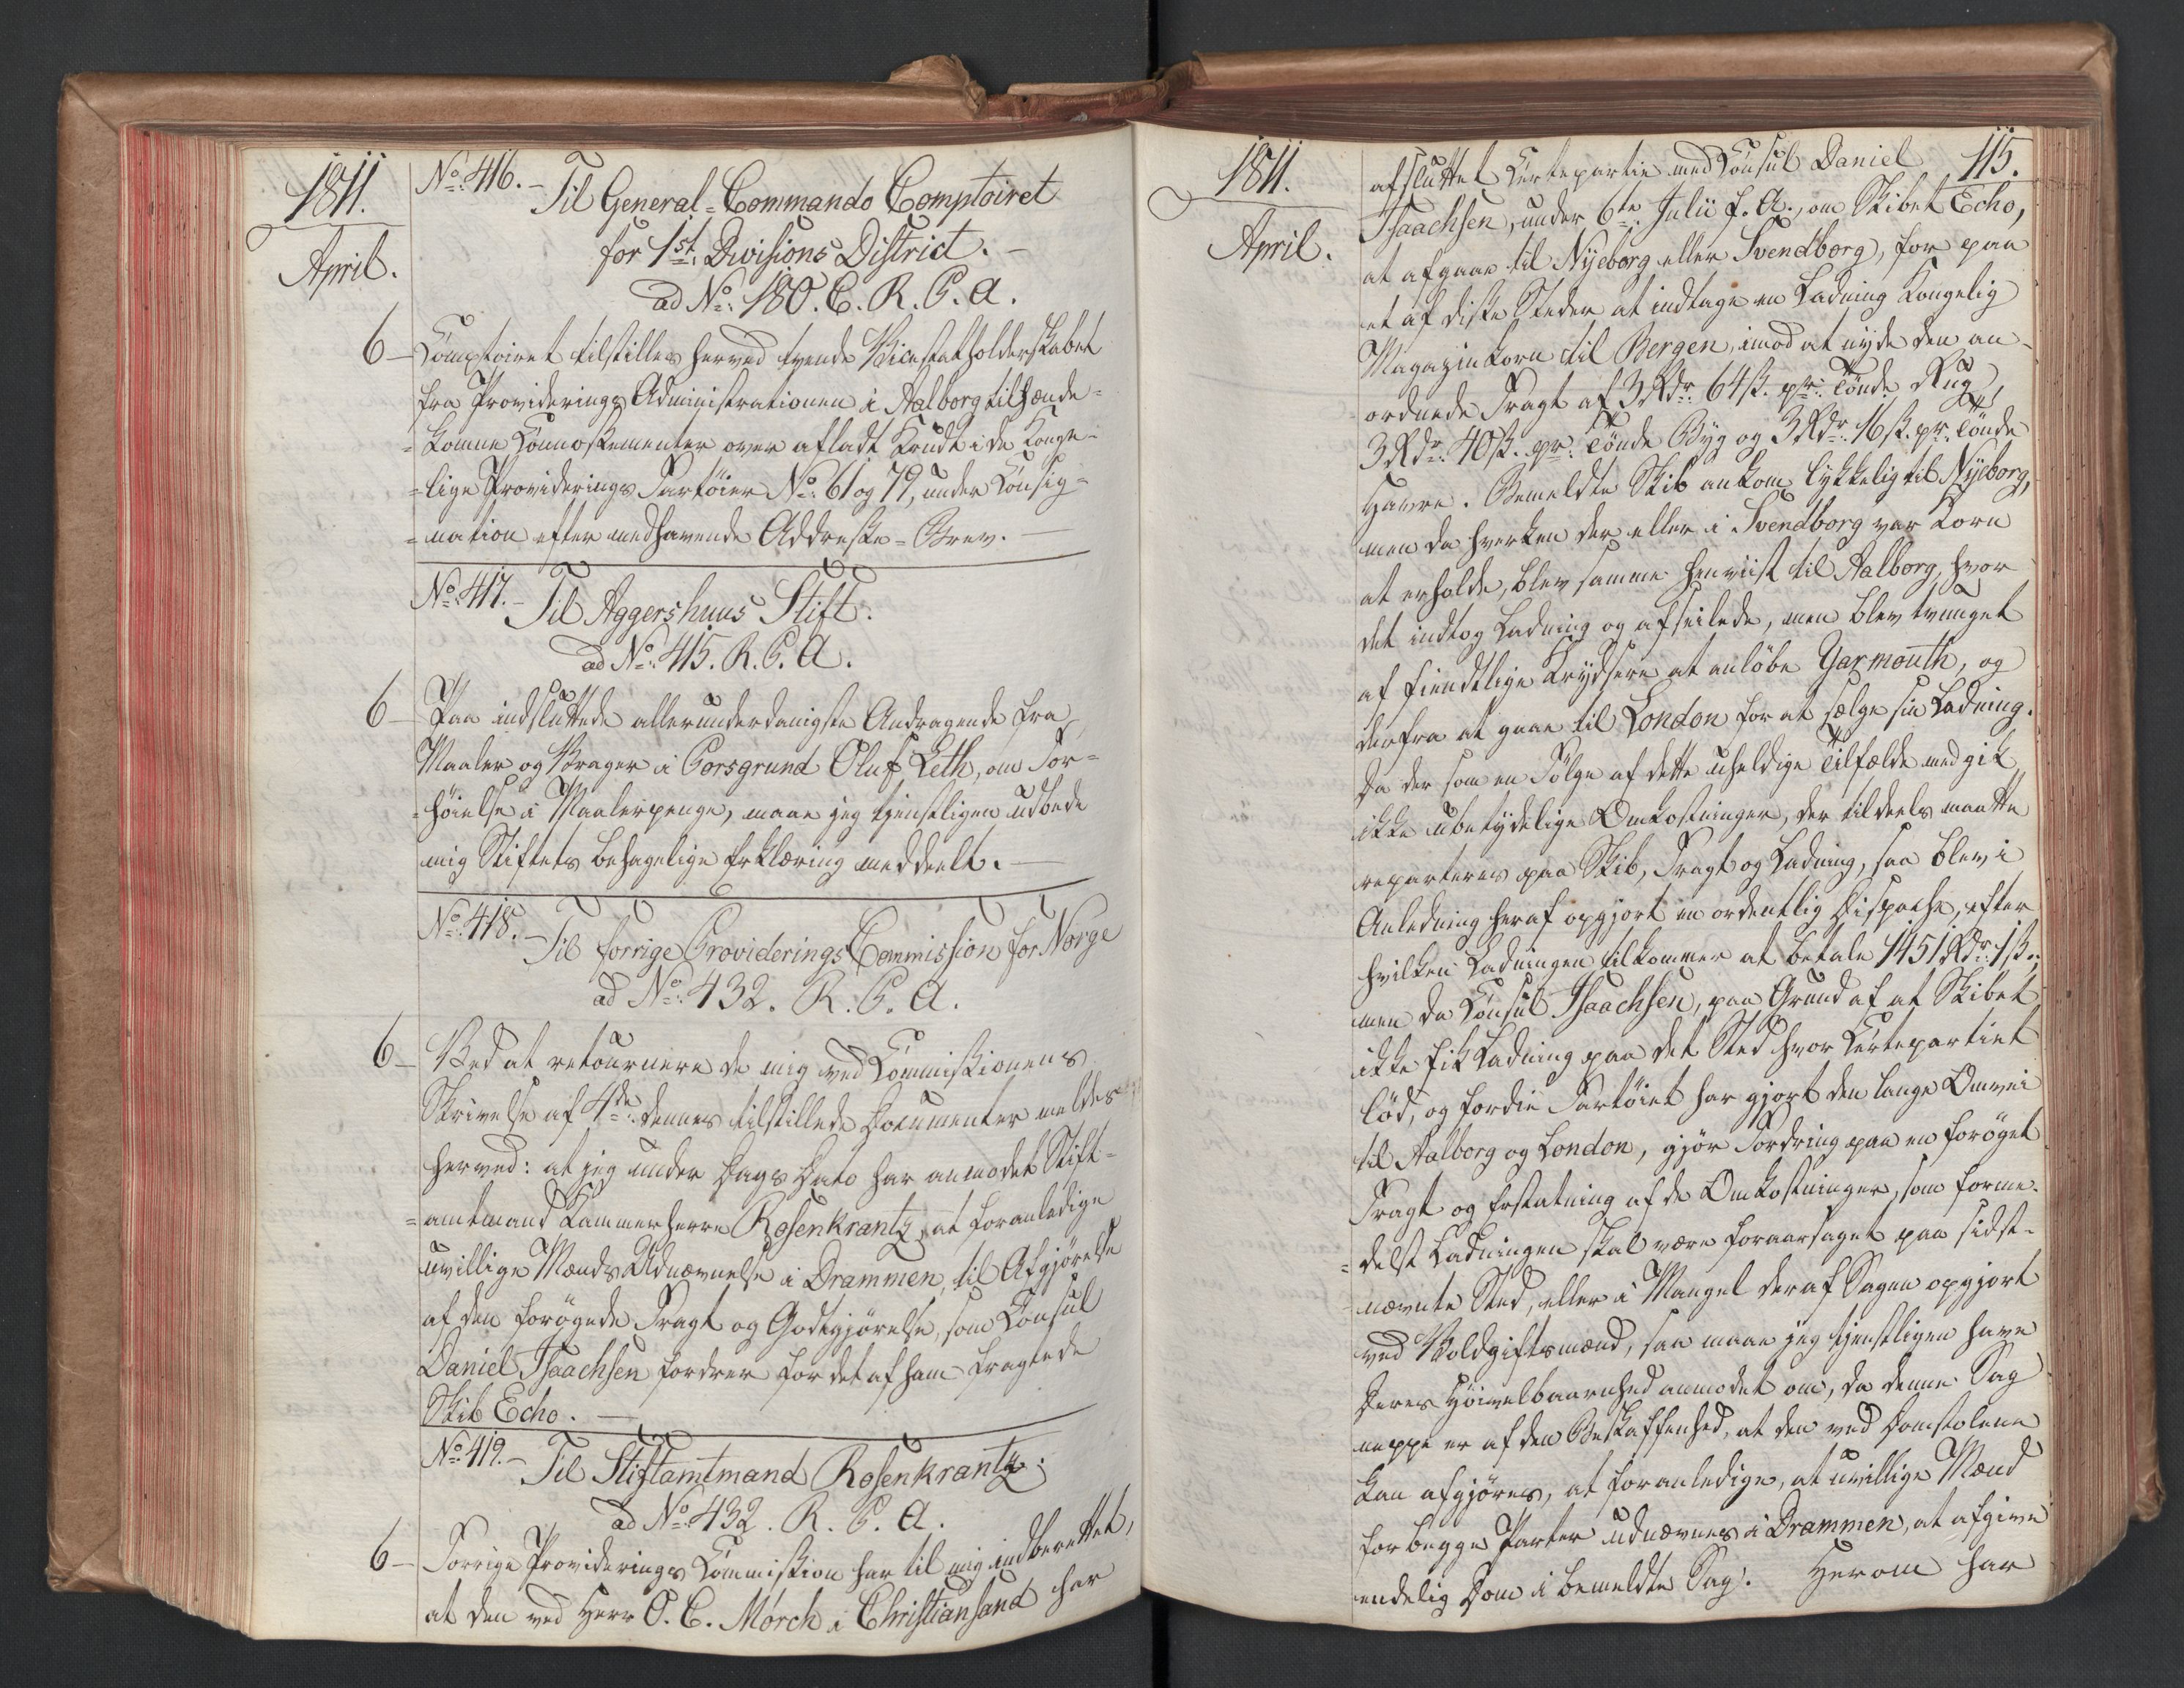 1811.
April.
No: 416. – Til General-Commando Comptoiret
for 1st: Divisions District. –
ad No: 180. C. R. P. A.
6 – Comptoiret tilstilles herved tvende Vicestatholderskabet
fra Providerings Administrationen i Aalborg tilhænde-
-komne Connossementer over afladt Krudt i de Konge-
-lige Providerings Fartöier No: 61 og 79, under Consig-
-nation efter medhavende Addresse-Brev. –
No: 417. – Til Aggershuus Stift.
ad No: 415. R. P. A.
6 – Paa indsluttede allerunderdanigste Andragende fra
Maaler og Vrager i Porsgrund Oluf Leth, om For-
-höielse i Maalerpenge, maae jeg tjenstligen udbede
mig Stiftets behagelige Erklæring meddeelt. –
No: 418. – Til forrige Providerings Commission for Norge
ad No: 432. R. P. A.
6 – Ved at retournere de mig ved Commissionens
Skrivelse af 4de: dennes tilstillede Documenter meldes
herved: at jeg under Dags Dato har anmodet Stift-
-amtmand Kammerherre Rosenkrantz, at foranledige
uvillige Mænds Udnævnelse i Drammen, til Afgjörelse
af den forögede Fragt og Godtgjörelse, som Consul
Daniel Isaachsen fordrer for det af ham fragtede
Skib Echo. –
No: 419. – Til Stiftamtmand Rosenkrantz.
ad No: 432. R. P. A.
6 – Forrige Providerings Commission har til mig indberettet,
at den ved Herr O. C. Mörch i Christiansand har
1811.
April.
115.
afsluttet Certepartie med Consul Daniel
Isaachsen, under 6te: Julii f. A., om Skibet Echo,
at afgaae til Nyeborg eller Svendborg, for paa
et af disse Steder at indtage en Ladning Kongelig
Magazinkorn til Bergen, imod at nyde den an-
ordnede Fragt af 3 Rdr: 64 ß. pr: Tönde Rug,
3 Rdr: 40 ß. pr: Tönde Byg og 3 Rdr: 16 ß. pr: Tönde
Havre. Bemeldte Skib ankom lykkelig til Nyeborg,
men da hverken der eller i Svendborg var Korn
at erholde, blev samme henviist til Aalborg, hvor
det indtog Ladning og afseilede, men blev tvunget
af fiendtlige Krydsere at anlöbe Yarmouth, og
derfra at gaae til London for at sælge sin Ladning.
Da der som en Fölge af dette uheldige Tilfælde medgik
ikke ubetydelige Omkostninger, der tildeels maatte
reparteres paa Skib, Fragt og Ladning, saa blev i
Anledning heraf opgjort en ordentlig Dispache, efter
hvilken Ladningen tilkommer at betale 1451 Rdr: 1 ß.;
men da Consul Isaachsen, paa Grund af at Skibet
ikke fik Ladning paa det Sted hvor Certepartiet
löd, og fordie Fartöiet har gjort den lange Omvei
til Aalborg og London, gjör Fordring paa en foröget
Fragt og Erstatning af de Omkostninger, som forme-
-delst Ladningen skal være foraarsaget paa sidst-
nævnte Sted, eller i Mangel deraf Sagen opgjort
ved Voldgiftsmænd, saa maae jeg tjenstligen have
Deres Höivelbaarnhed anmodet om, da denne Sag
neppe er af den Beskaffenhed, at den ved Domstolene
kan afgjöres, at foranledige, at uvillige Mænd
for begge Parter udnævnes i Drammen, at afgive
endelig Dom i bemeldte Sag. Herom har